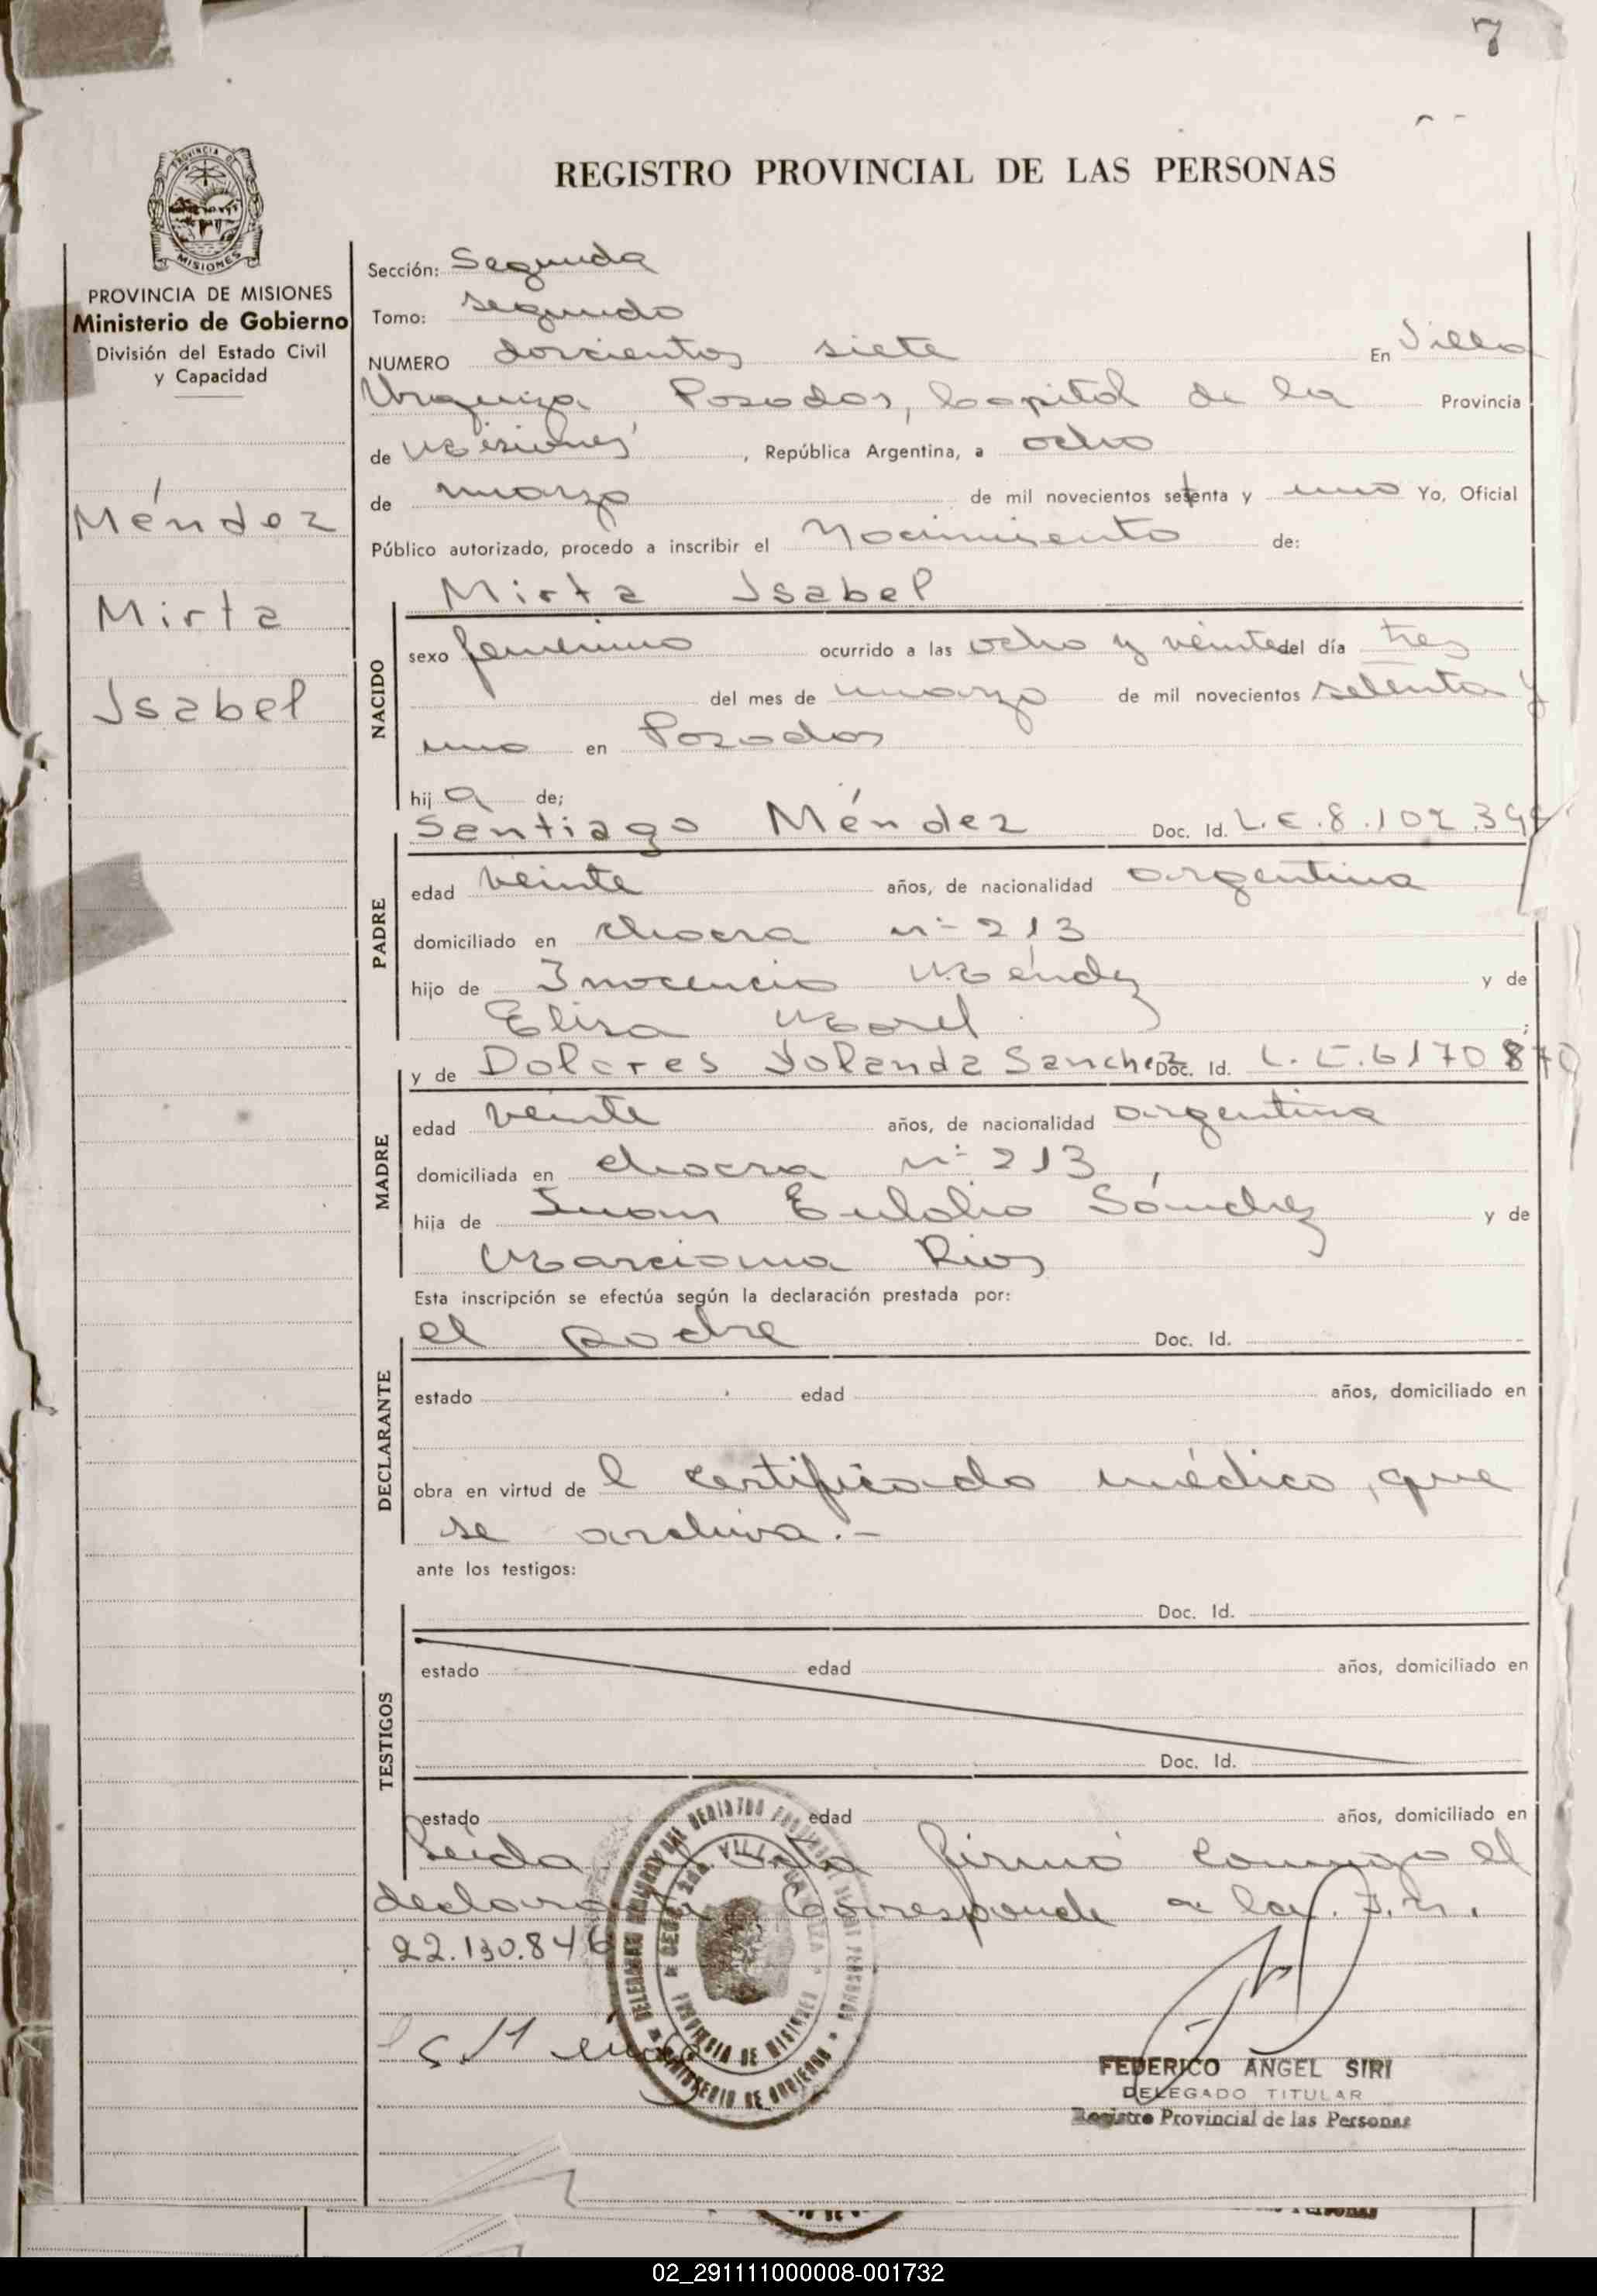 7
REGISTRO PROVINCIAL DE LAS PERSONAS
PROVINCIA DE
MISIONES
PROVINCIA DE MISIONES
Ministerio de Gobierno
División del Estado Civil
y Capacidad
Méndez
Mirta
Isabel
Sección: Segunda
Tomo: segundo
NUMERO doscientos siete En Villa
Urquiza Posadas, Capital de la Provincia
de Misiones, República Argentina, a ocho
de marzo de mil novecientos setenta y uno Yo, Oficial
Público autorizado, procedo a inscribir el Nacimiento de:
Mirta Isabel
NACIDO
sexo femenino ocurrido a las ocho y veinte del día tres
del mes de marzo de mil novecientos setenta y
uno en Posadas
hija de;
PADRE
Santiago Méndez Doc. Id. L.E.8.102.39
edad veinte años, de nacionalidad argentina
domiciliado en chacra nº 213
hijo de Inocencio Méndez y de
Elisa Morel
MADRE
y de Dolores Yolanda Sanchez Doc. Id. L.C.6170870
edad veinte años, de nacionalidad argentina
domiciliada en chacra nº 213,
hija de Juan Eulolio Sánchez y de
Marciana Rios
Esta inscripción se efectúa según la declaración prestada por:
DECLARANTE
el padre Doc. Id.
estado edad años, domiciliado en
obra en virtud del certificado médico, que
se archiva.-
ante los testigos:
TESTIGOS
Doc. Id.
estado edad años, domiciliado en
Doc. Id.
estado edad años, domiciliado en
Leida el acta firmó conmigo el
declarante Corresponde a la F.N.
22.130.846
PROVINCIA DE MISIONES
MINISTERIO DE GOBIERNO
FEDERICO ANGEL SIRI
DELEGADO TITULAR
Registro Provincial de las Personas
02_291111000008-001732